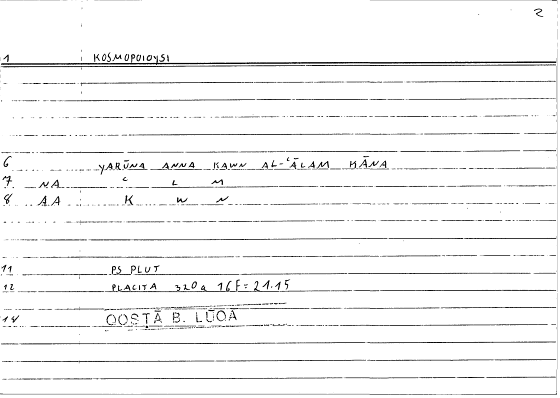 2
1 KOSMOPOIOYSI
6 YARŪNA ANNA KAWN AL-ʿĀLAM KĀNA
7 NA ʿ L M
8 AA K W N
11 PS PLUT
12 PLACITA 320a 16f = 21.15
14 QOSṬĀ B. LŪQĀ